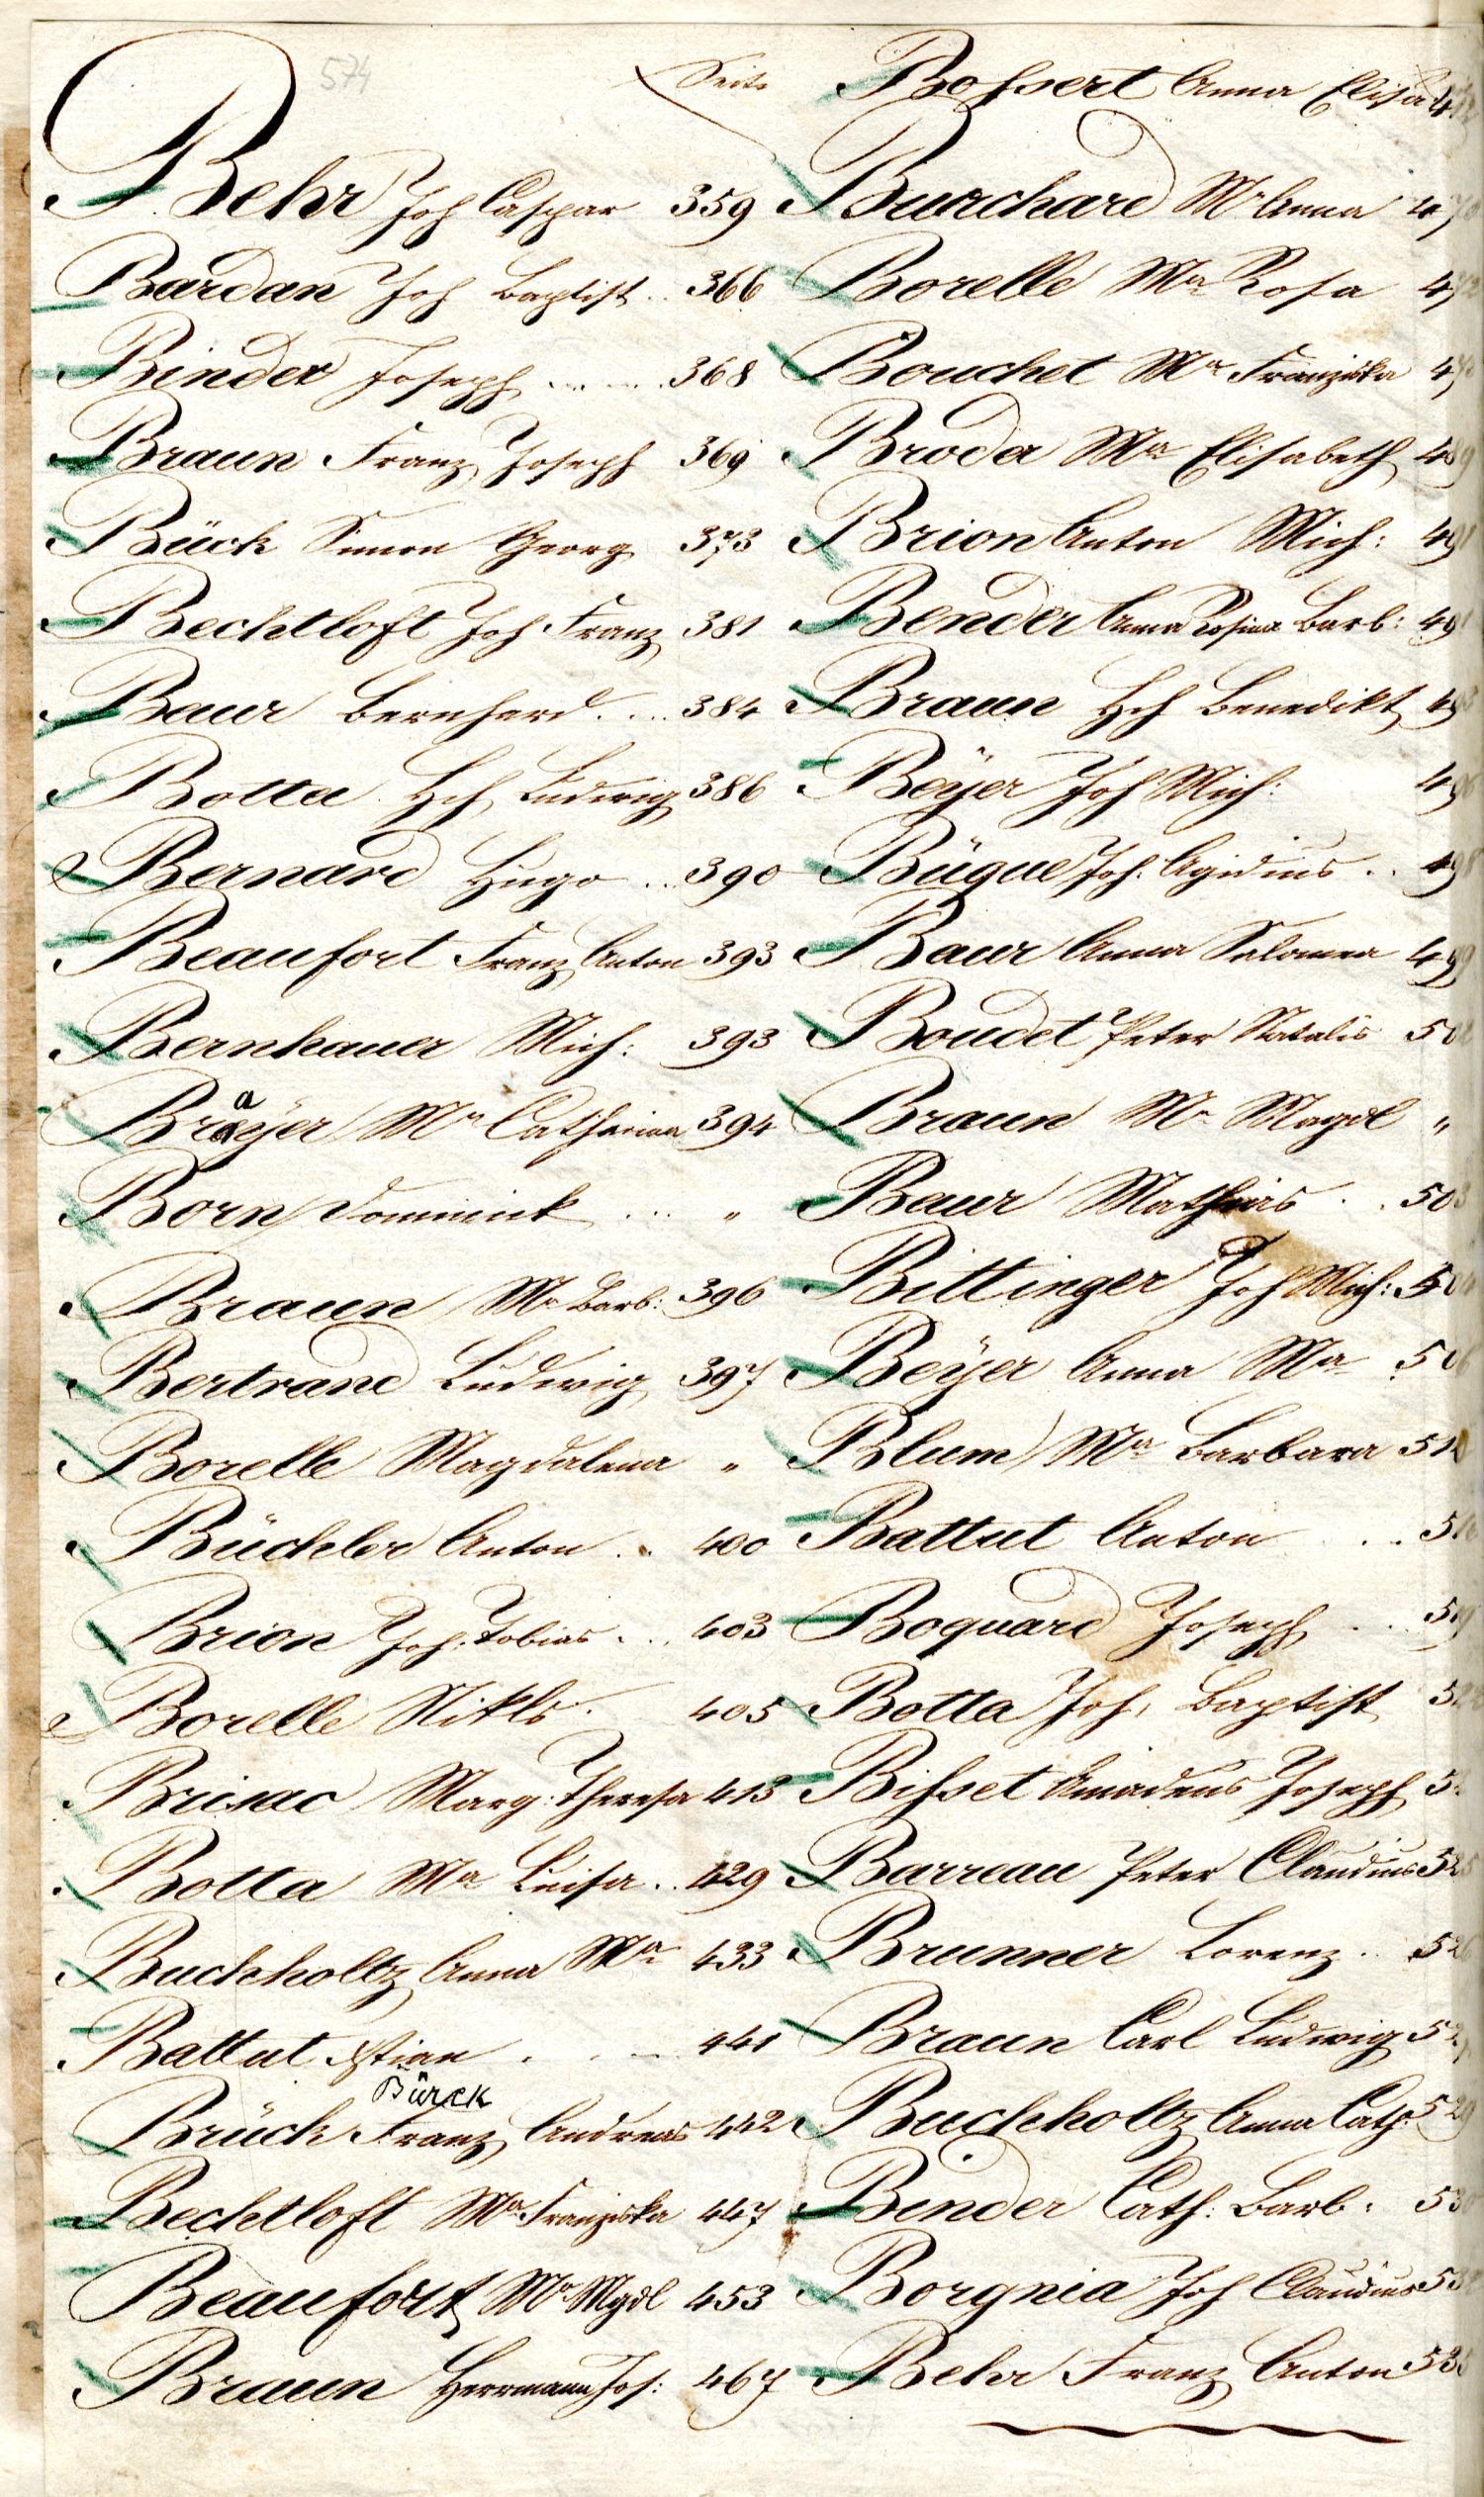 574
Seite
Behr Joh Caspar 359
Bardan Joh Baptist .. 366
Binder Joseph ... ... 368
Braun Franz Joseph 369
Bück Simon Georg 373
Bechtloft Joh Franz 381
Baur Bernhard .... 384
Botta Hch Ludwig 386
Bernard Hugo ... 390
Beaufort Franz Anton 393
Bernhauer Mich: 393
a
Brayer Ma Catharina 394
Born Dominick ... "
Braun Ma Barb: 396
Bertrand Ludwig 397
Borelle Magdalena "
Büchler Anton .. 400
Brion Joh. Tobias ... 403
Borelle Nikls. 405
Brisac Marg: Theresa 413
Botta Ma Luisa .. 429
Buchholtz Anna Ma 433
Battut Xstian . . ... 441
Bürck
Brück Franz Andreas 442
Bechtloft Ma Franziska 447
Beaufort Ma Mgdl 453
Braun Herrmann Jos: 467
Bossert Anna Elisa
Burchard Ma Anna
Borelle Ma Rosa 472
Bouchet Ma Franziska
Broda Ma Elisabeth 489
Brion Anton Mich: 491
Bender Anna Rosina Barb: 491
Braun Hch Benedikt
Beÿer Joh Mich:
Bügue Joh. Agidius ..
Baur Anna Salomea 499
Boudet Peter Natalis
Braun Ma Magdl "
Baur Mathias . . 503
Bittinger Joh Mich: 504
Beÿer Anna Ma 506
Blum Ma Barbara
Battut Anton ...
Boquard Joseph ...
Botta Joh. Baptist
Bisset Amadeus Joseph
Barreau Peter Claudius 525
Brunner Lorenz .. 526
Braun Carl Ludwig
Buchholtz Anna Cath: 529
Binder Cath: Barb:
Borgnia Joh Claudius
Behr Franz Anton